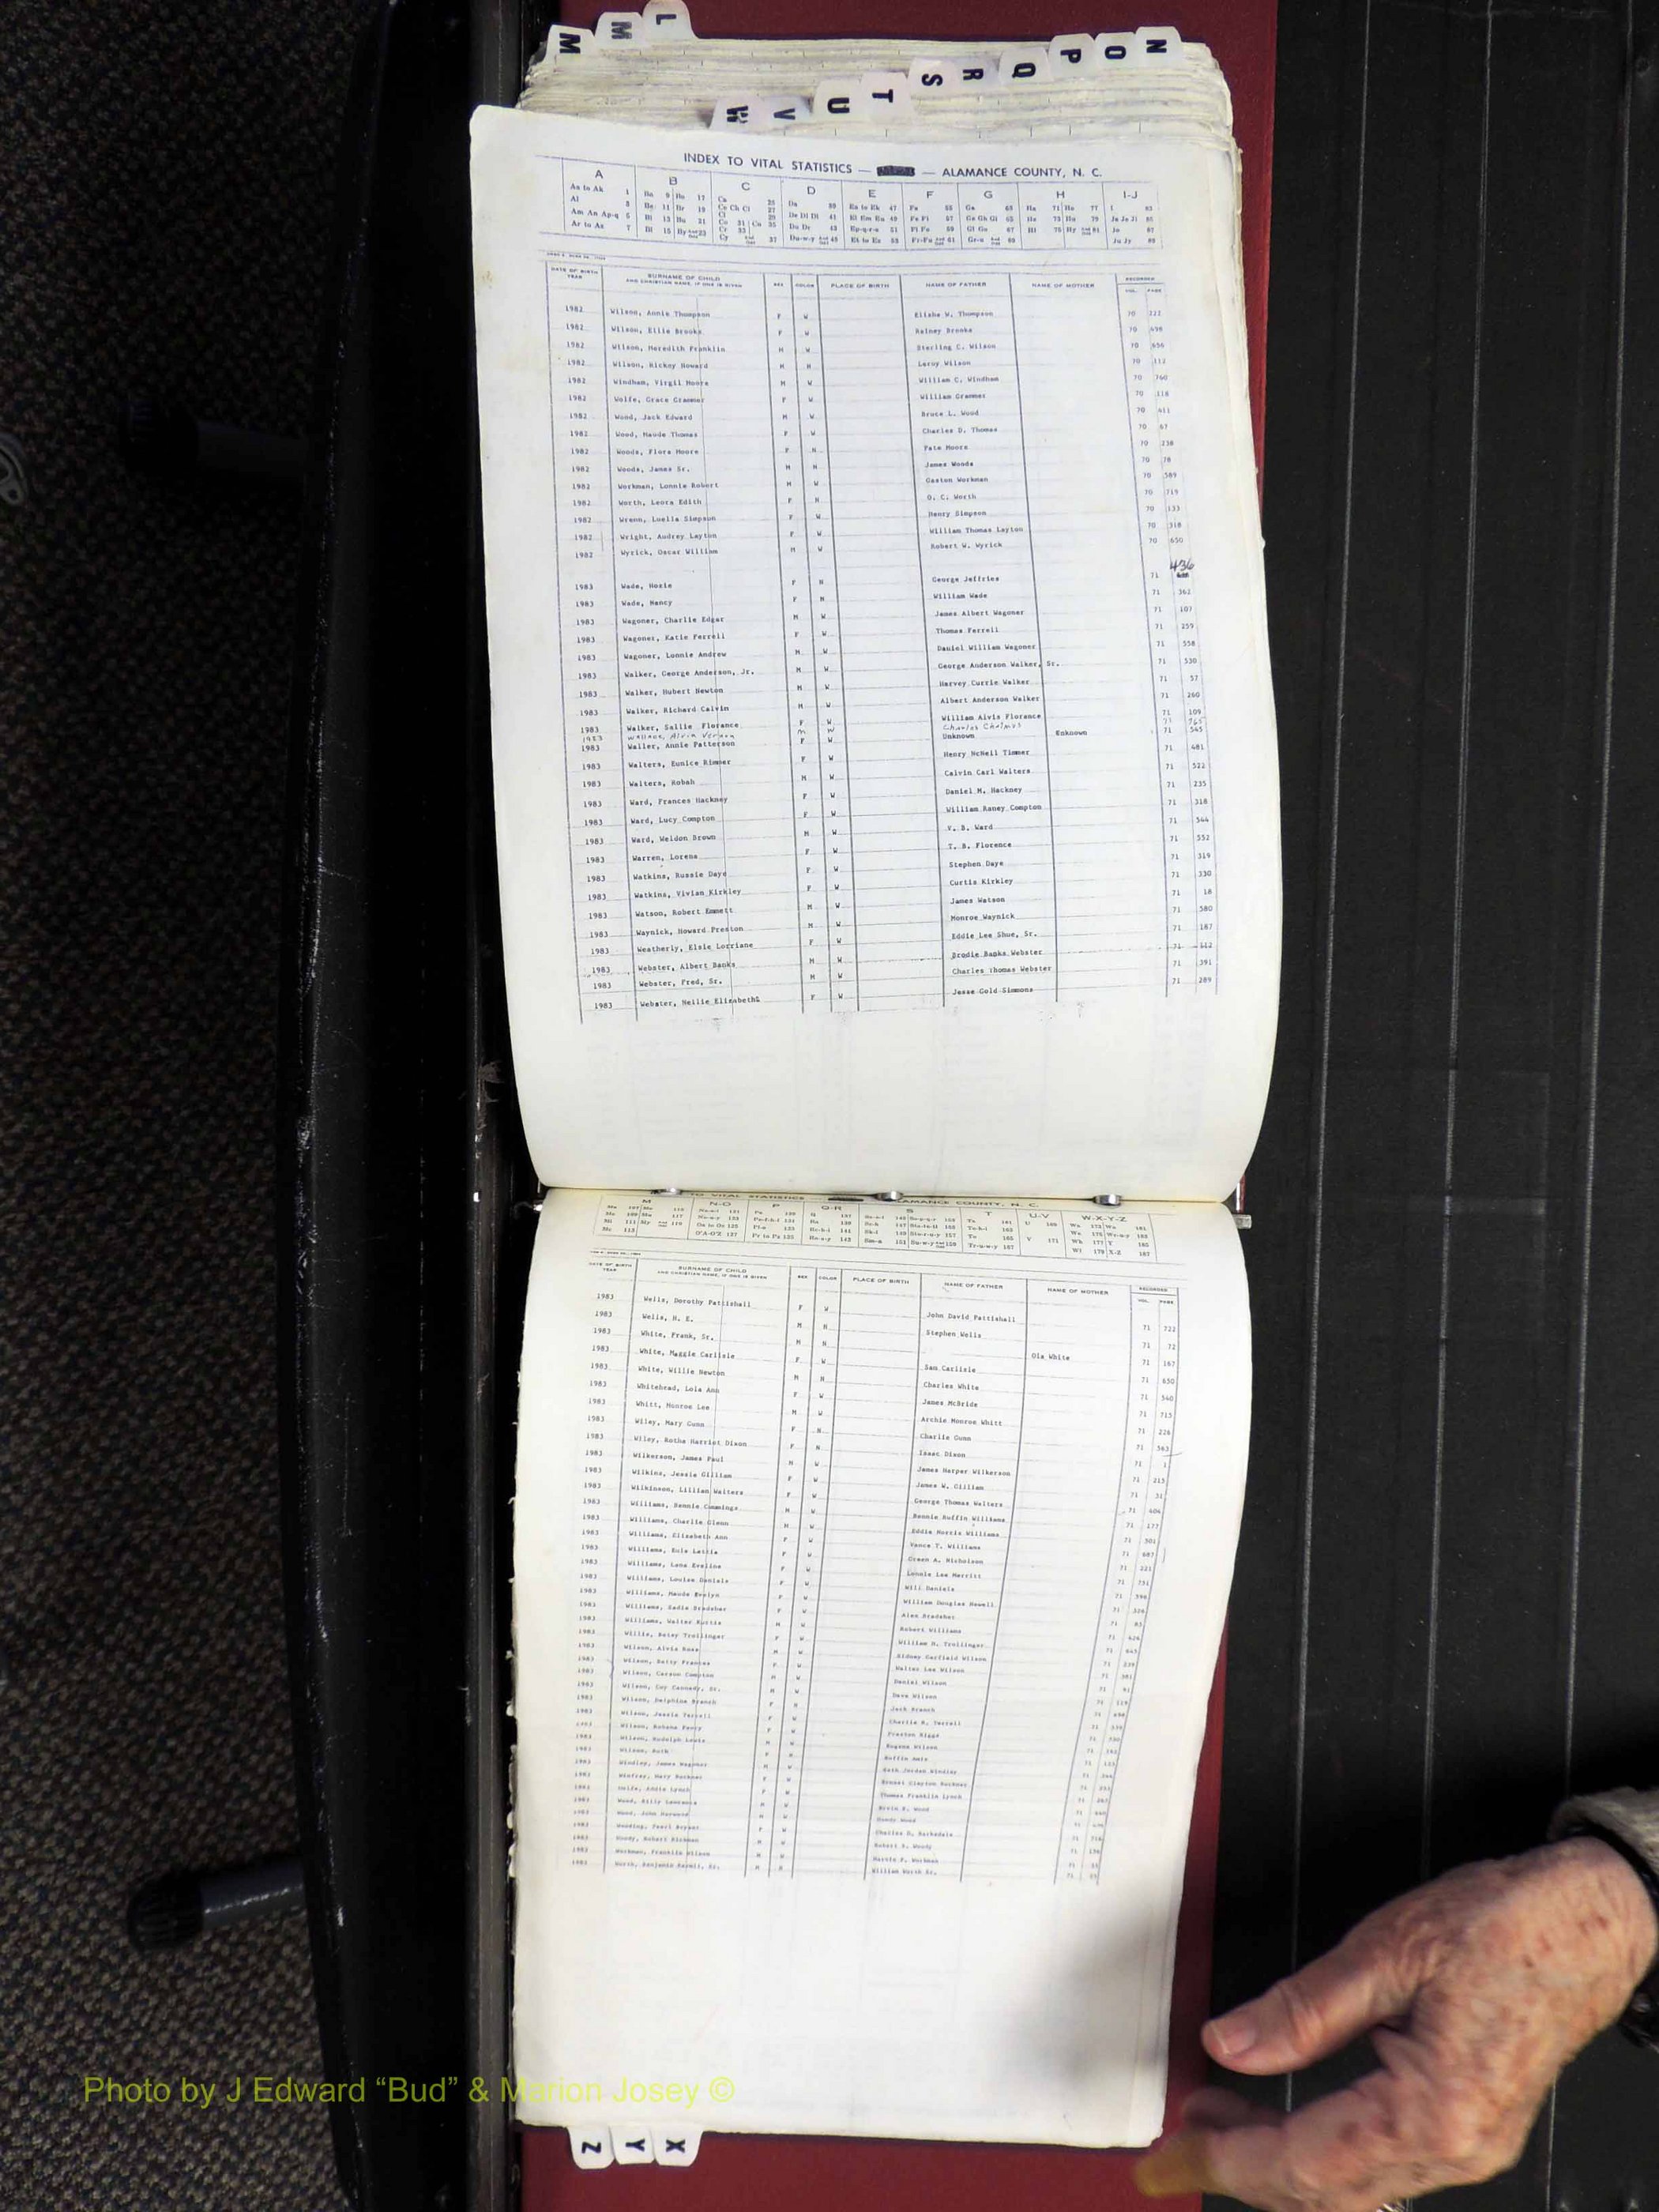 L
M
M
N
O
P
Q
R
S
T
U
V
W
INDEX TO VITAL STATISTICS — — ALAMANCE COUNTY, N. C.
A B C D E F G H I-J
DATE OF BIRTH YEAR SURNAME OF CHILD AND CHRISTIAN NAME, IF ONE IS GIVEN SEX COLOR PLACE OF BIRTH NAME OF FATHER NAME OF MOTHER RECORDED VOL. PAGE
1982 Wilson, Annie Thompson F W Elisha W. Thompson 70 222
1982 Wilson, Ellie Brooks F W Rainey Brooks 70 498
1982 Wilson, Meredith Franklin M W Sterling C. Wilson 70 656
1982 Wilson, Rickey Howard M N Leroy Wilson 70 112
1982 Windham, Virgil Moore M W William C. Windham 70 760
1982 Wolfe, Grace Grammer F W William Grammer 70 118
1982 Wood, Jack Edward M W Bruce L. Wood 70 411
1982 Wood, Maude Thomas F W Charles D. Thomas 70 67
1982 Woods, Flora Moore F N Pate Moore 70 238
1982 Woods, James Sr. M N James Woods 70 78
1982 Workman, Lonnie Robert M W Gaston Workman 70 589
1982 Worth, Leora Edith F N O. C. Worth 70 719
1982 Wrenn, Luella Simpson F W Henry Simpson 70 133
1982 Wright, Audrey Layton F W William Thomas Layton 70 318
1982 Wyrick, Oscar William M W Robert W. Wyrick 70 650
1983 Wade, Hozie F N George Jeffries 71 436
1983 Wade, Nancy F N William Wade 71 362
1983 Wagoner, Charlie Edgar M W James Albert Wagoner 71 107
1983 Wagoner, Katie Ferrell F W Thomas Ferrell 71 259
1983 Wagoner, Lonnie Andrew M W Daniel William Wagoner 71 558
1983 Walker, George Anderson, Jr. M W George Anderson Walker, Sr. 71 530
1983 Walker, Hubert Newton M W Harvey Currie Walker 71 57
1983 Walker, Richard Calvin M W Albert Anderson Walker 71 260
1983 Walker, Sallie Florance F W William Alvis Florance 71 109
1983 Wallace, Alvin Vernon M W Charles Chalmus 71 765
1983 Waller, Annie Patterson F W Unknown Enknown 71 545
1983 Walters, Eunice Rimmer F W Henry McNeil Timmer 71 481
1983 Walters, Robah M W Calvin Carl Walters 71 522
1983 Ward, Frances Hackney F W Daniel M. Hackney 71 235
1983 Ward, Lucy Compton F W William Raney Compton 71 318
1983 Ward, Weldon Brown M W V. B. Ward 71 544
1983 Warren, Lorena F W T. B. Florence 71 552
1983 Watkins, Russie Daye F W Stephen Daye 71 319
1983 Watkins, Vivian Kirkley F W Curtis Kirkley 71 330
1983 Watson, Robert Emmett M W James Watson 71 18
1983 Waynick, Howard Preston M W Monroe Waynick 71 580
1983 Weatherly, Elsie Lorriane F W Eddie Lee Shue, Sr. 71 187
1983 Webster, Albert Banks M W Brodie Banks Webster 71 512
1983 Webster, Fred, Sr. M W Charles Thomas Webster 71 391
1983 Webster, Nellie Elizabeth F W Jesse Gold Simmons 71 289
TO VITAL STATISTICS ALAMANCE COUNTY, N. C.
M N-O P Q-R S T U-V W-X-Y-Z
DATE OF BIRTH YEAR SURNAME OF CHILD AND CHRISTIAN NAME, IF ONE IS GIVEN SEX COLOR PLACE OF BIRTH NAME OF FATHER NAME OF MOTHER RECORDED VOL. PAGE
1983 Wells, Dorothy Pattishall F W John David Pattishall 71 722
1983 Wells, H. E. M N Stephen Wells 71 72
1983 White, Frank, Sr. M N Ola White 71 167
1983 White, Maggie Carlisle F W Sam Carlisle 71 650
1983 White, Willie Newton M N Charles White 71 540
1983 Whitehead, Lola Ann F W James McBride 71 715
1983 Whitt, Monroe Lee M W Archie Monroe Whitt 71 226
1983 Wiley, Mary Gunn F N Charlie Gunn 71 563
1983 Wiley, Rotha Harriet Dixon F N Isaac Dixon 71 1
1983 Wilkerson, James Paul M W James Harper Wilkerson 71 215
1983 Wilkins, Jessie Gilliam F W James W. Gilliam 71 31
1983 Wilkinson, Lillian Walters F W George Thomas Walters 71 404
1983 Williams, Bennie Cummings M W Bennie Ruffin Williams 71 177
1983 Williams, Charlie Glenn M W Eddie Morris Williams 71 301
1983 Williams, Elizabeth Ann F W Vance T. Williams 71 687
1983 Williams, Eula Latzia F W Green A. Nicholson 71 221
1983 Williams, Lena Eveline F W Lonnie Lee Merritt 71 751
1983 Williams, Louise Daniels F W Will Daniels 71 398
1983 Williams, Maude Evelyn F W William Douglas Howell 71 326
1983 Williams, Sadie Bradsher F W Alex Bradsher 71 83
1983 Williams, Walter Kurtis M W Robert Williams 71 626
1983 Willis, Betsy Trollinger F W William H. Trollinger 71 645
1983 Wilson, Alvis Ross M W Sidney Garfield Wilson 71 239
1983 Wilson, Betty Frances F W Walter Lee Wilson 71 381
1983 Wilson, Carson Compton M W Daniel Wilson 71 91
1983 Wilson, Coy Cannady, Sr. M W Dave Wilson 71 119
1983 Wilson, Delphine Branch F N Jack Branch 71
1983 Wilson, Jessie Terrell F W Charlie R. Terrell 71
1983 Wilson, Robena Perry F W Preston Riggs 71
1983 Wilson, Rudolph Louis M W Eugene Wilson 71
1983 Wilson, Ruth F Ruffin 71
1983 Windley, James Wagoner M W Jordan Windley 71
1983 Winfrey, Mary Buckner F W Ernest Clayton Buckner 71
1983 Wolfe, Addie Lynch F W Thomas Franklin Lynch 71
1983 Wood, Billy Lawrence M W Wood 71
1983 Wood, John Harwood M W Wood 71
1983 Wooding, Pearl Bryant F W Charles D. Barksdale 71
1983 Woody, Robert Hickman M W Robert S. Woody 71
1983 Workman, Franklin Wilson M W Martin F. Workman 71
1983 Worth, Benjamin Sr. M N William Worth Sr. 71
Photo by J Edward “Bud” & Marion Josey ©
Z
Y
X